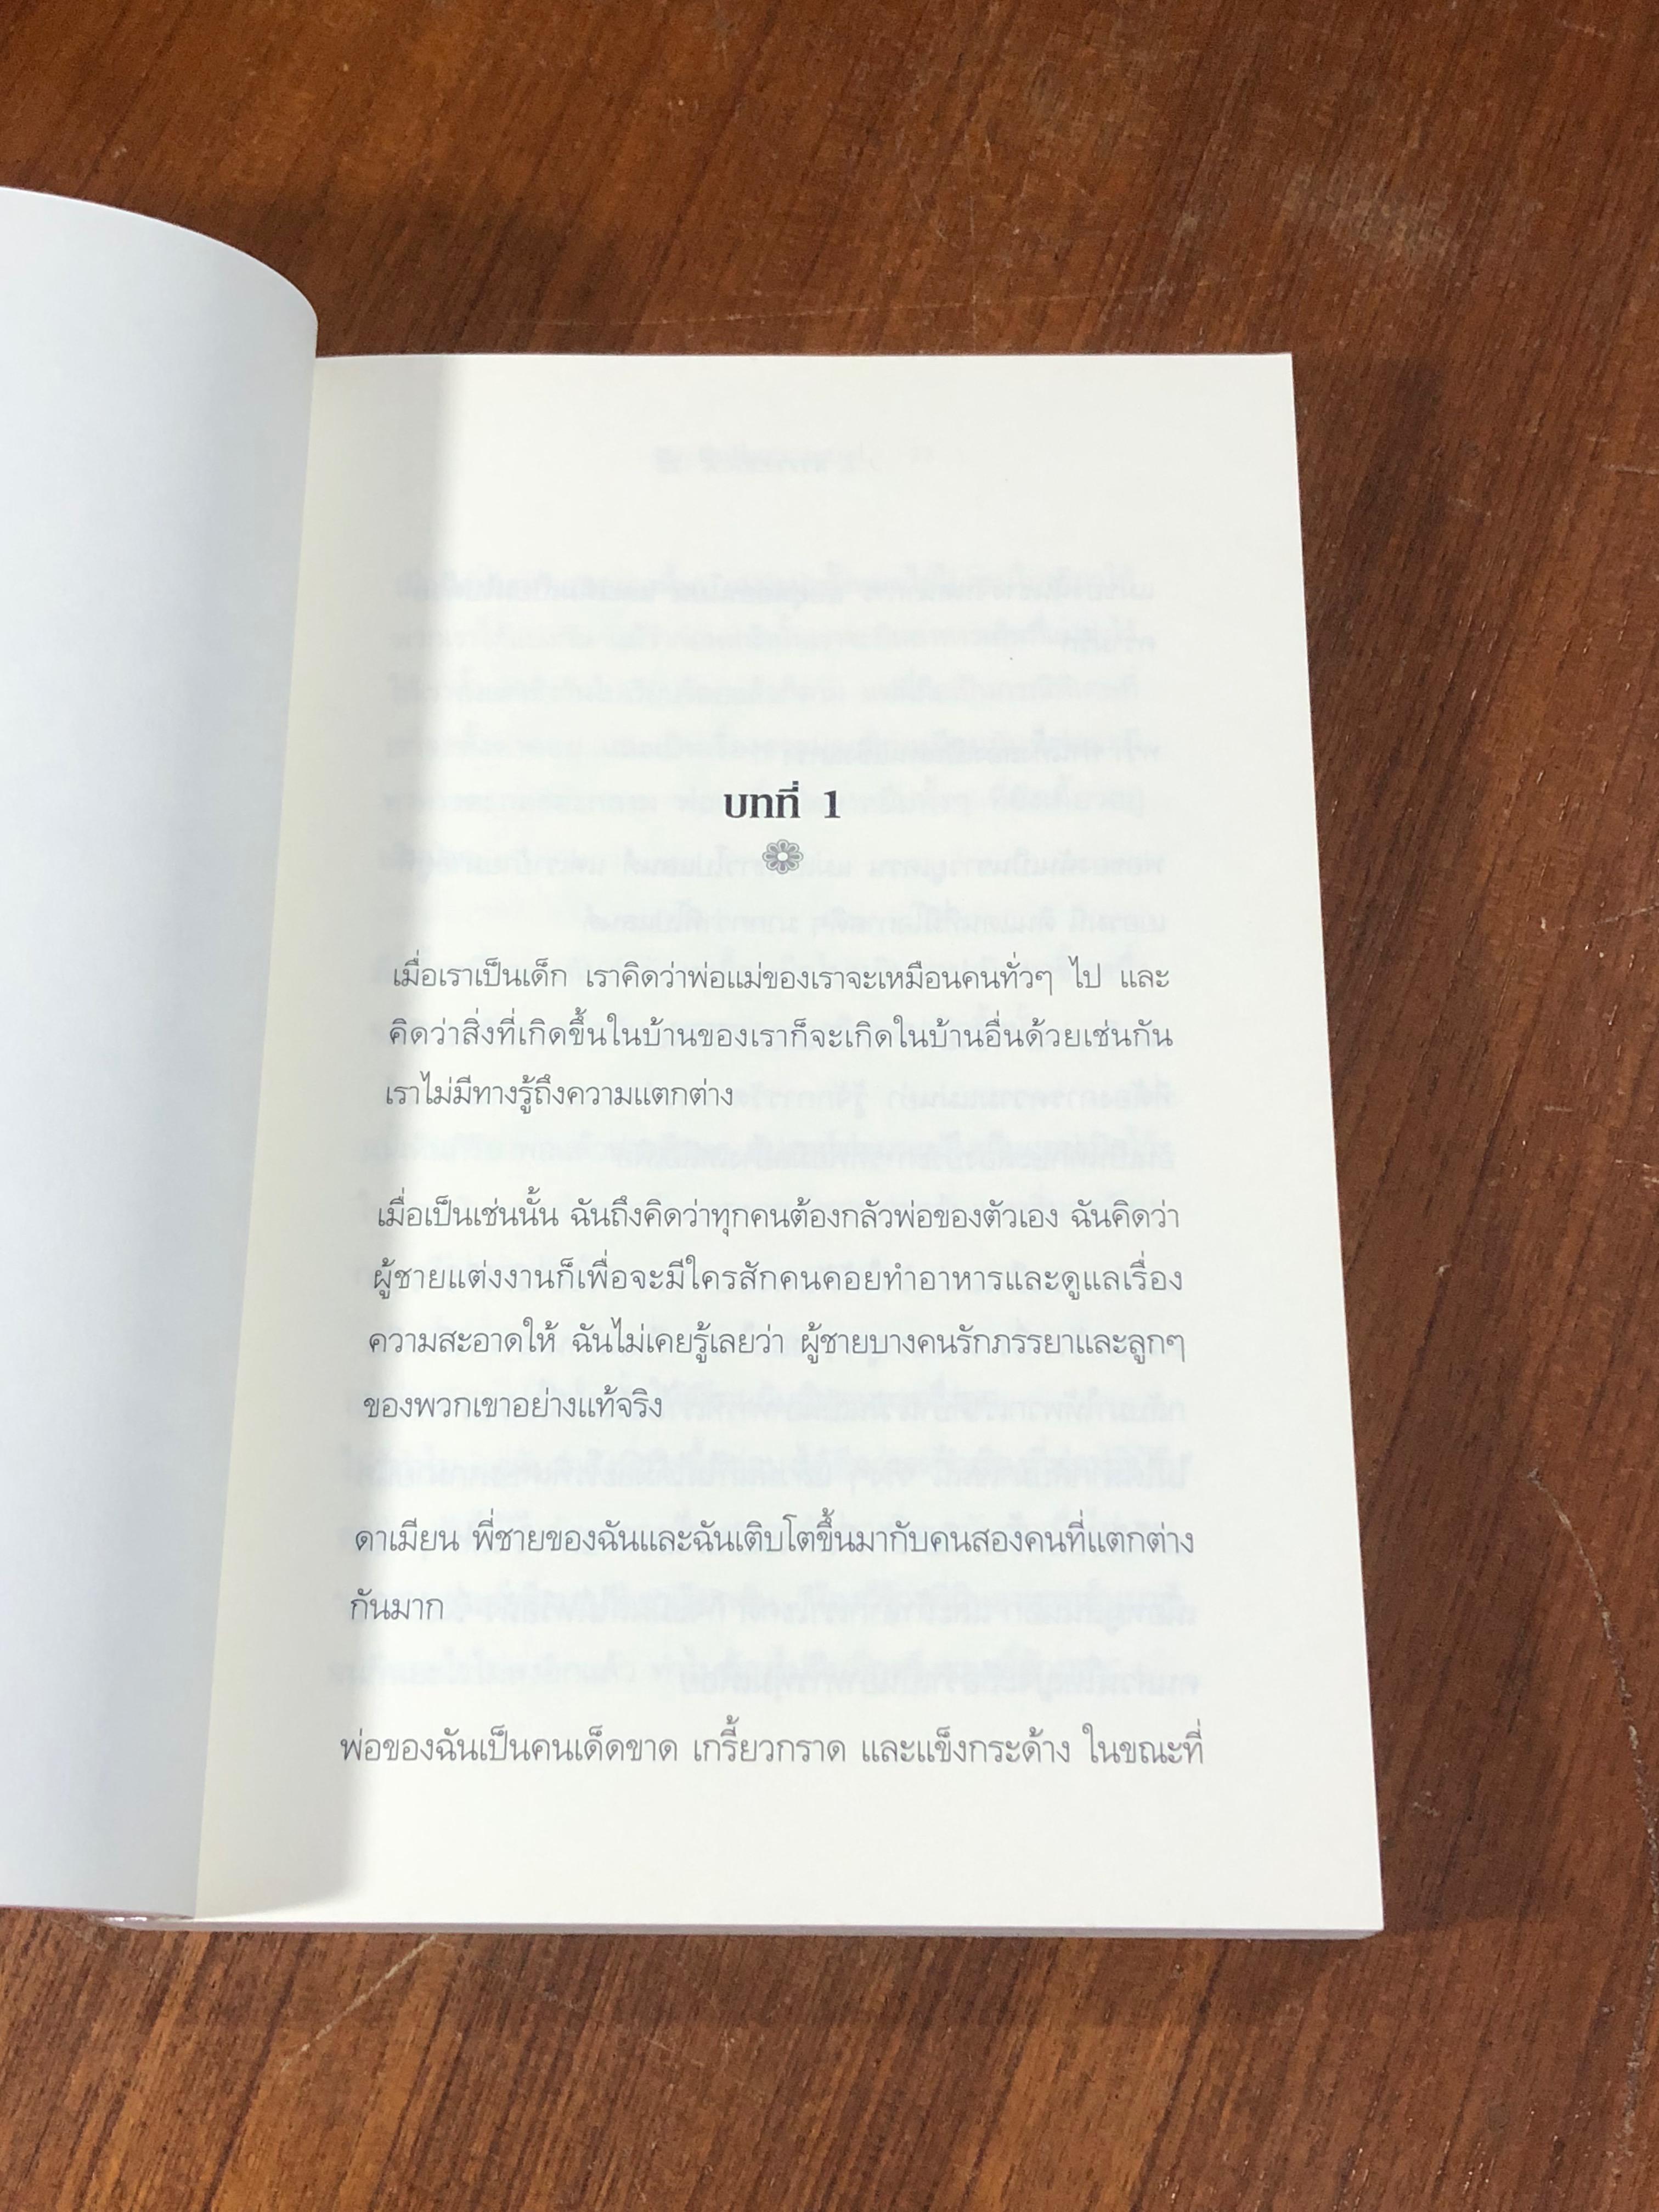 บทที่ 1
เมื่อเราเป็นเด็ก เราคิดว่าพ่อแม่ของเราจะเหมือนคนทั่วๆ ไป และ
คิดว่าสิ่งที่เกิดขึ้นในบ้านของเราก็จะเกิดในบ้านอื่นด้วยเช่นกัน
เราไม่มีทางรู้ถึงความแตกต่าง
เมื่อเป็นเช่นนั้น ฉันถึงคิดว่าทุกคนต้องกลัวพ่อของตัวเอง ฉันคิดว่า
ผู้ชายแต่งงานก็เพื่อจะมีใครสักคนคอยทำอาหารและดูแลเรื่อง
ความสะอาดให้ ฉันไม่เคยรู้เลยว่า ผู้ชายบางคนรักภรรยาและลูกๆ
ของพวกเขาอย่างแท้จริง
ดาเมียน พี่ชายของฉันและฉันเติบโตขึ้นมากับคนสองคนที่แตกต่าง
กันมาก
พ่อของฉันเป็นคนเด็ดขาด เกรี้ยวกราด และแข็งกระด้าง ในขณะที่